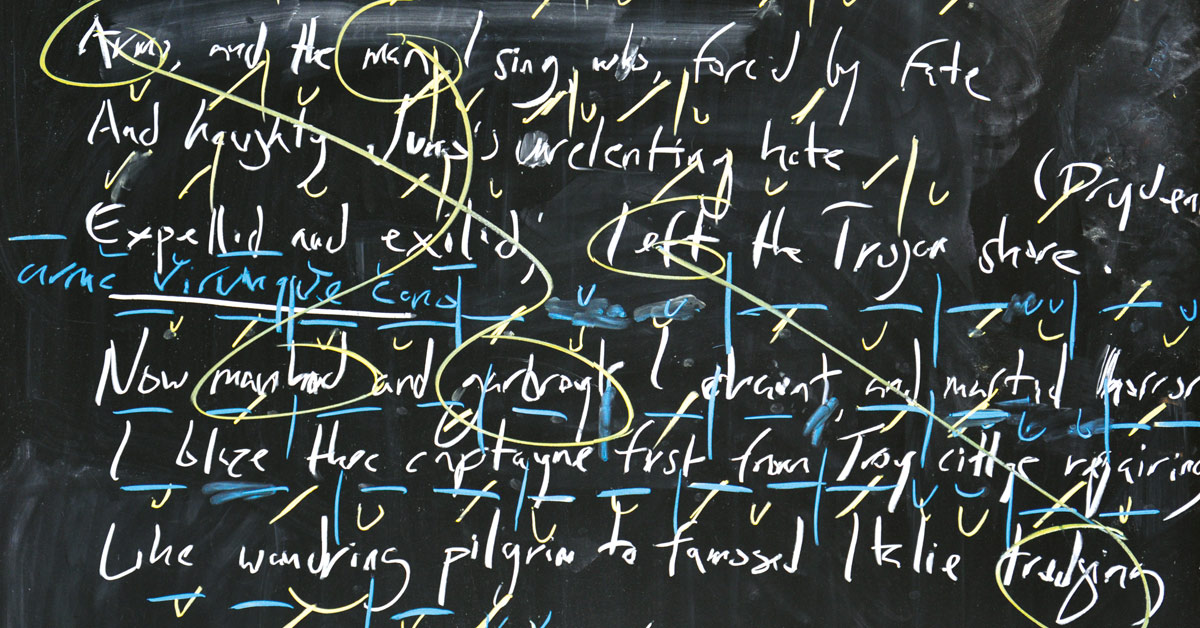 Arms, and the man I sing who, forc'd by Fate
And haughty Juno's unrelenting hate
Expell'd and exil'd, left the Trojan shore.
(Dryden
arma virumque cano
Now manhod and garbroyls I chaunt, and martial horror
I blaze thee captayne first from Troy cittye repairing
Like wandring pilgrim to famosed Italie trudging